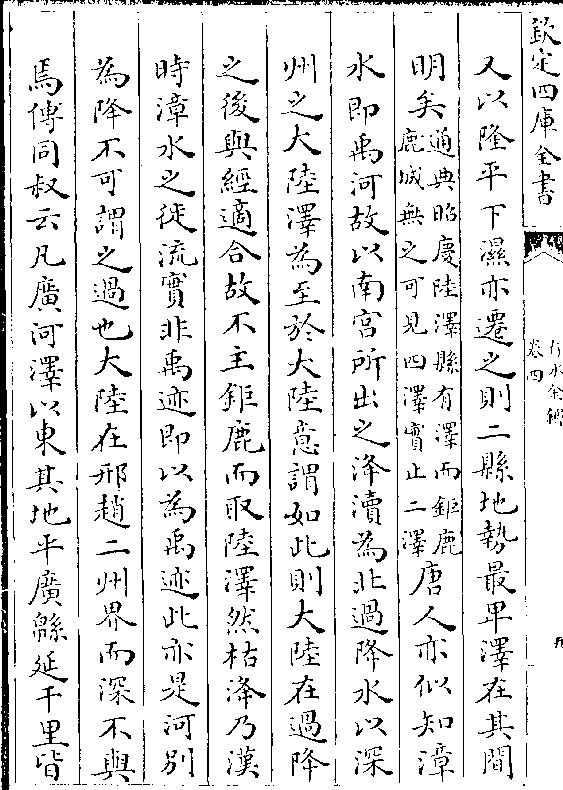 欽定四庫全書
行水金鑑
卷四
九
又以隆平下濕亦遷之則二縣地勢最卑澤在其間
明矣通典昭慶陸澤縣有澤而鉅鹿鹿城無之可見四澤實止二澤唐人亦似知漳
水即禹河故以南宮所出之洚瀆為北過降水以深
州之大陸澤為至於大陸意謂如此則大陸在過降
之後與經適合故不主鉅鹿而取陸澤然枯洚乃漢
時漳水之徙流實非禹迹即以為禹迹此亦是河別
為降不可謂之過也大陸在邢趙二州界而深不與
焉傳同叔云凡廣河澤以東其地平廣緜延千里皆